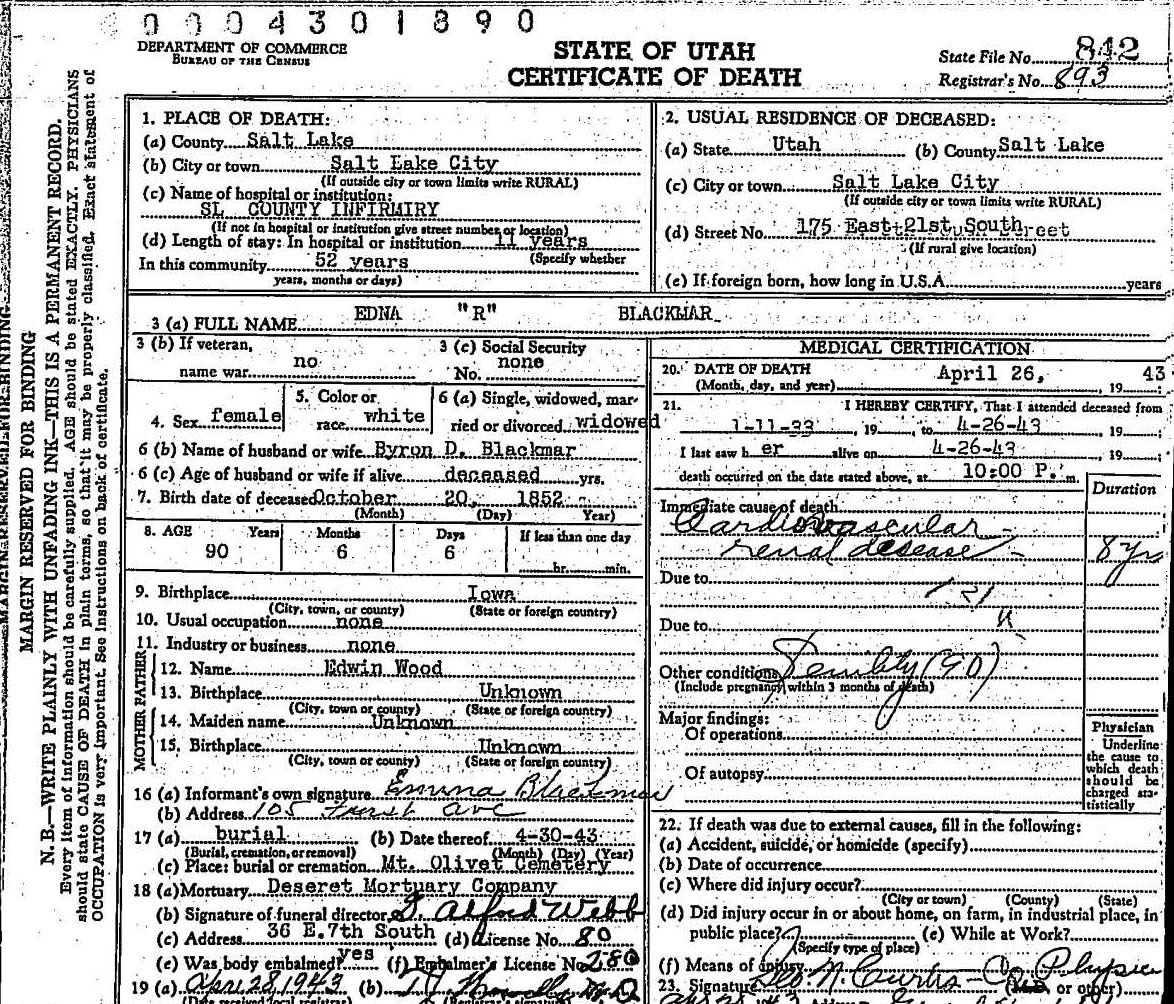 0004301890
DEPARTMENT OF COMMERCE
BUREAU OF THE CENSUS
STATE OF UTAH
CERTIFICATE OF DEATH
State File No. 842
Registrar's No. 893
MARGIN RESERVED FOR BINDING
MARGIN RESERVED FOR BINDING
N. B.—WRITE PLAINLY WITH UNFADING INK—THIS IS A PERMANENT RECORD.
Every item of information should be carefully supplied. AGE should be stated EXACTLY. PHYSICIANS
should state CAUSE OF DEATH in plain terms, so that it may be properly classified. Exact statement of
OCCUPATION is very important. See instructions on back of certificate.
1. PLACE OF DEATH:
(a) County Salt Lake
(b) City or town Salt Lake City
(If outside city or town limits write RURAL)
(c) Name of hospital or institution:
SL COUNTY INFIRMIRY
(If not in hospital or institution give street number or location)
(d) Length of stay: In hospital or institution 11 years
(Specify whether
In this community 52 years
years, months or days)
2. USUAL RESIDENCE OF DECEASED:
(a) State Utah (b) County Salt Lake
(c) City or town Salt Lake City
(If outside city or town limits write RURAL)
(d) Street No. 175 East 21st South
(If rural give location)
(e) If foreign born, how long in U.S.A. years
3 (a) FULL NAME EDNA "R" BLACKMAR
3 (b) If veteran,
name war no
3 (c) Social Security
No. none
4. Sex female
5. Color or
race white
6 (a) Single, widowed, mar-
ried or divorced widowed
6 (b) Name of husband or wife Byron D. Blackmar
6 (c) Age of husband or wife if alive deceased yrs.
7. Birth date of deceased October 20, 1852
(Month) (Day) Year)
8. AGE Years Months Days If less than one day
90 6 6 hr. min.
9. Birthplace Iowa
(City, town, or county) (State or foreign country)
10. Usual occupation none
11. Industry or business none
FATHER
12. Name Edwin Wood
13. Birthplace Unknown
(City, town or county) (State or foreign country)
MOTHER
14. Maiden name Unknown
15. Birthplace Unknown
(City, town or county) (State or foreign country)
16 (a) Informant's own signature Emma Blackmar
(b) Address 105 Ave
17 (a) burial (b) Date thereof 4-30-43
(Burial, cremation, or removal) (Month) (Day) (Year)
(c) Place: burial or cremation Mt. Olivet Cemetery
18 (a) Mortuary Deseret Mortuary Company
(b) Signature of funeral director Alford Webb
(c) Address 36 E.7th South (d) License No. 80
(e) Was body embalmed? yes (f) Embalmer's License No. 280
19 (a) Apr 28, 1943 (b)
(Date received local registrar)
MEDICAL CERTIFICATION
20. DATE OF DEATH April 26, 19 43
(Month, day, and year)
21. I HEREBY CERTIFY, That I attended deceased from
1-11-33 19 to 4-26-43 19
I last saw h er alive on 4-26-43 19
death occurred on the date stated above, at 10:00 P. m.
Duration
Immediate cause of death
Cardiovascular-
renal desease - 8 yrs
Due to
131
Due to
Other conditions Senility (90)
(Include pregnancy within 3 months of death)
Major findings:
Of operations
Of autopsy
Physician
Underline
the cause to
which death
should be
charged sta-
tistically
22. If death was due to external causes, fill in the following:
(a) Accident, suicide, or homicide (specify)
(b) Date of occurrence
(c) Where did injury occur?
(City or town) (County) (State)
(d) Did injury occur in or about home, on farm, in industrial place, in
public place? (e) While at Work?
(Specify type of place)
(f) Means of injury
23. Signature Geo. N. Curtis - Co Physician
(M.D. or other)